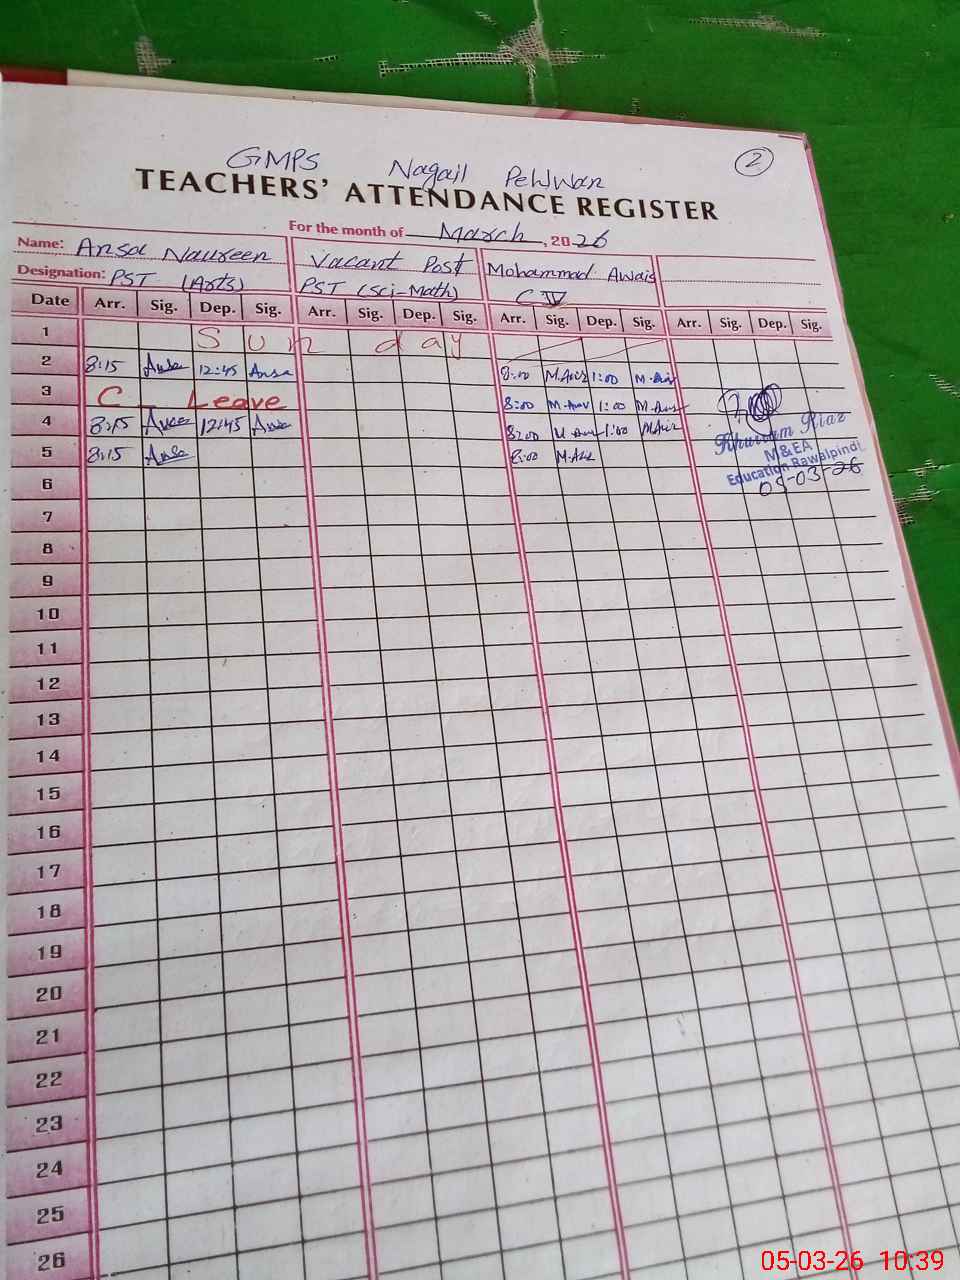 GMPS Nagail Pehlwan 2
TEACHERS' ATTENDANCE REGISTER
For the month of March, 2026
Name: Ansa Naureen Vacant Post Mohammad Awais
Designation: PST (Arts) PST (Sci-Math) C IV
Date Arr. Sig. Dep. Sig. Arr. Sig. Dep. Sig. Arr. Sig. Dep. Sig. Arr. Sig. Dep. Sig.
1 Sunday
2 8:15 Ansa 12:45 Ansa 8:00 M.Awais 1:00 M.Awais
3 C - Leave 8:00 M.Awais 1:00 M.Awais
4 8:15 Ansa 12:45 Ansa 8:00 M.Awais 1:00 M.Awais
5 8:15 Ansa 8:00 M.Awais
Khurram Riaz
M&EA
Education Rawalpindi
05-03-26
6
7
8
9
10
11
12
13
14
15
16
17
18
19
20
21
22
23
24
25
26
05-03-26 10:39